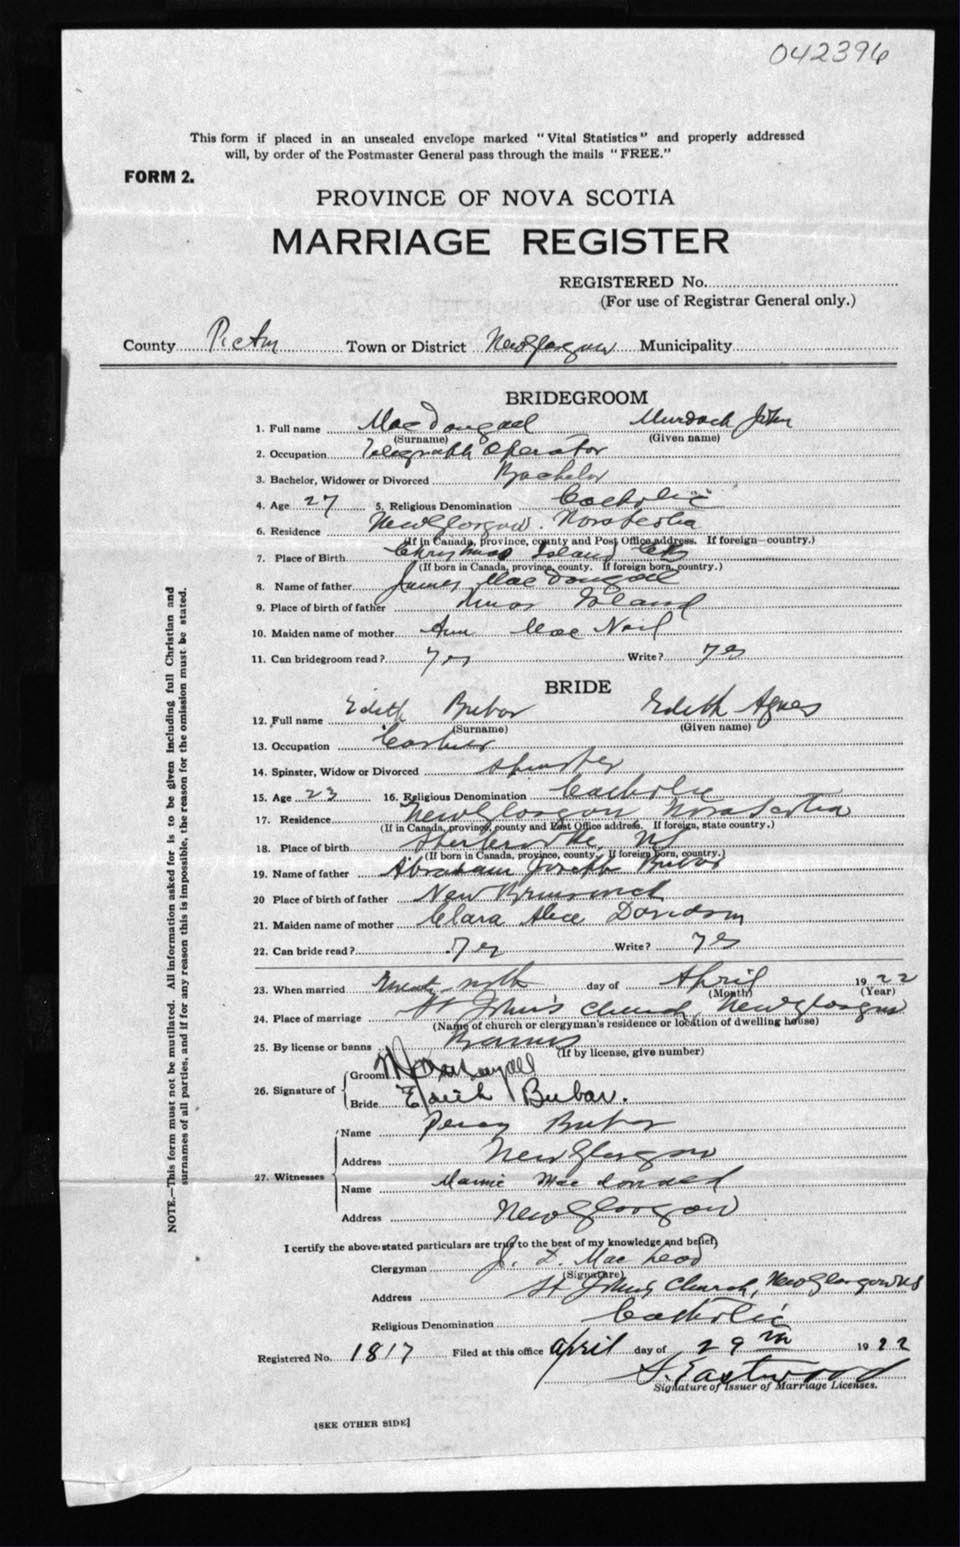 042396
This form if placed in an unsealed envelope marked "Vital Statistics" and properly addressed
will, by order of the Postmaster General pass through the mails "FREE."
FORM 2.
PROVINCE OF NOVA SCOTIA
MARRIAGE REGISTER
REGISTERED No.
(For use of Registrar General only.)
County Pictou Town or District New Glasgow Municipality
BRIDEGROOM
1. Full name MacDougall Murdoch John
(Surname) (Given name)
2. Occupation Telegraph Operator
3. Bachelor, Widower or Divorced Bachelor
4. Age 27 5. Religious Denomination Catholic
6. Residence New Glasgow. Nova Scotia
(If in Canada, province, county and Post Office address. If foreign country.)
7. Place of Birth Christmas Island CB
(If born in Canada, province, county. If foreign born, country.)
8. Name of father James MacDougall
9. Place of birth of father Island
10. Maiden name of mother Ann MacNeil
11. Can bridegroom read? yes Write? yes
BRIDE
12. Full name Edith Bubar Edith Agnes
(Surname) (Given name)
13. Occupation Cashier
14. Spinster, Widow or Divorced Spinster
15. Age 23 16. Religious Denomination Catholic
17. Residence New Glasgow Nova Scotia
(If in Canada, province, county and Post Office address. If foreign, state country.)
18. Place of birth
(If born in Canada, province, county. If foreign born, country.)
19. Name of father Abraham Joseph Bubar
20 Place of birth of father New Brunswick
21. Maiden name of mother Clara Alice Davidson
22. Can bride read? yes Write? yes
23. When married day of April 1922
(Month) (Year)
24. Place of marriage St John's Church, New Glasgow
(Name of church or clergyman's residence or location of dwelling house)
25. By license or banns Banns
(If by license, give number)
26. Signature of Groom
Bride Edith Bubar.
27. Witnesses Name Percy Bubar
Address New Glasgow
Name Mamie MacDonald
Address New Glasgow
I certify the above stated particulars are true to the best of my knowledge and belief,
Clergyman J. D. MacLeod
(Signature)
Address St John's Church, New Glasgow NS
Religious Denomination Catholic
Registered No. 1817 Filed at this office April day of 29th 1922
S. Eastwood
Signature of Issuer of Marriage Licenses.
[SEE OTHER SIDE]
NOTE.—This form must not be mutilated. All information asked for is to be given including full Christian and
surnames of all parties, and if for any reason this is impossible, the reason for the omission must be stated.